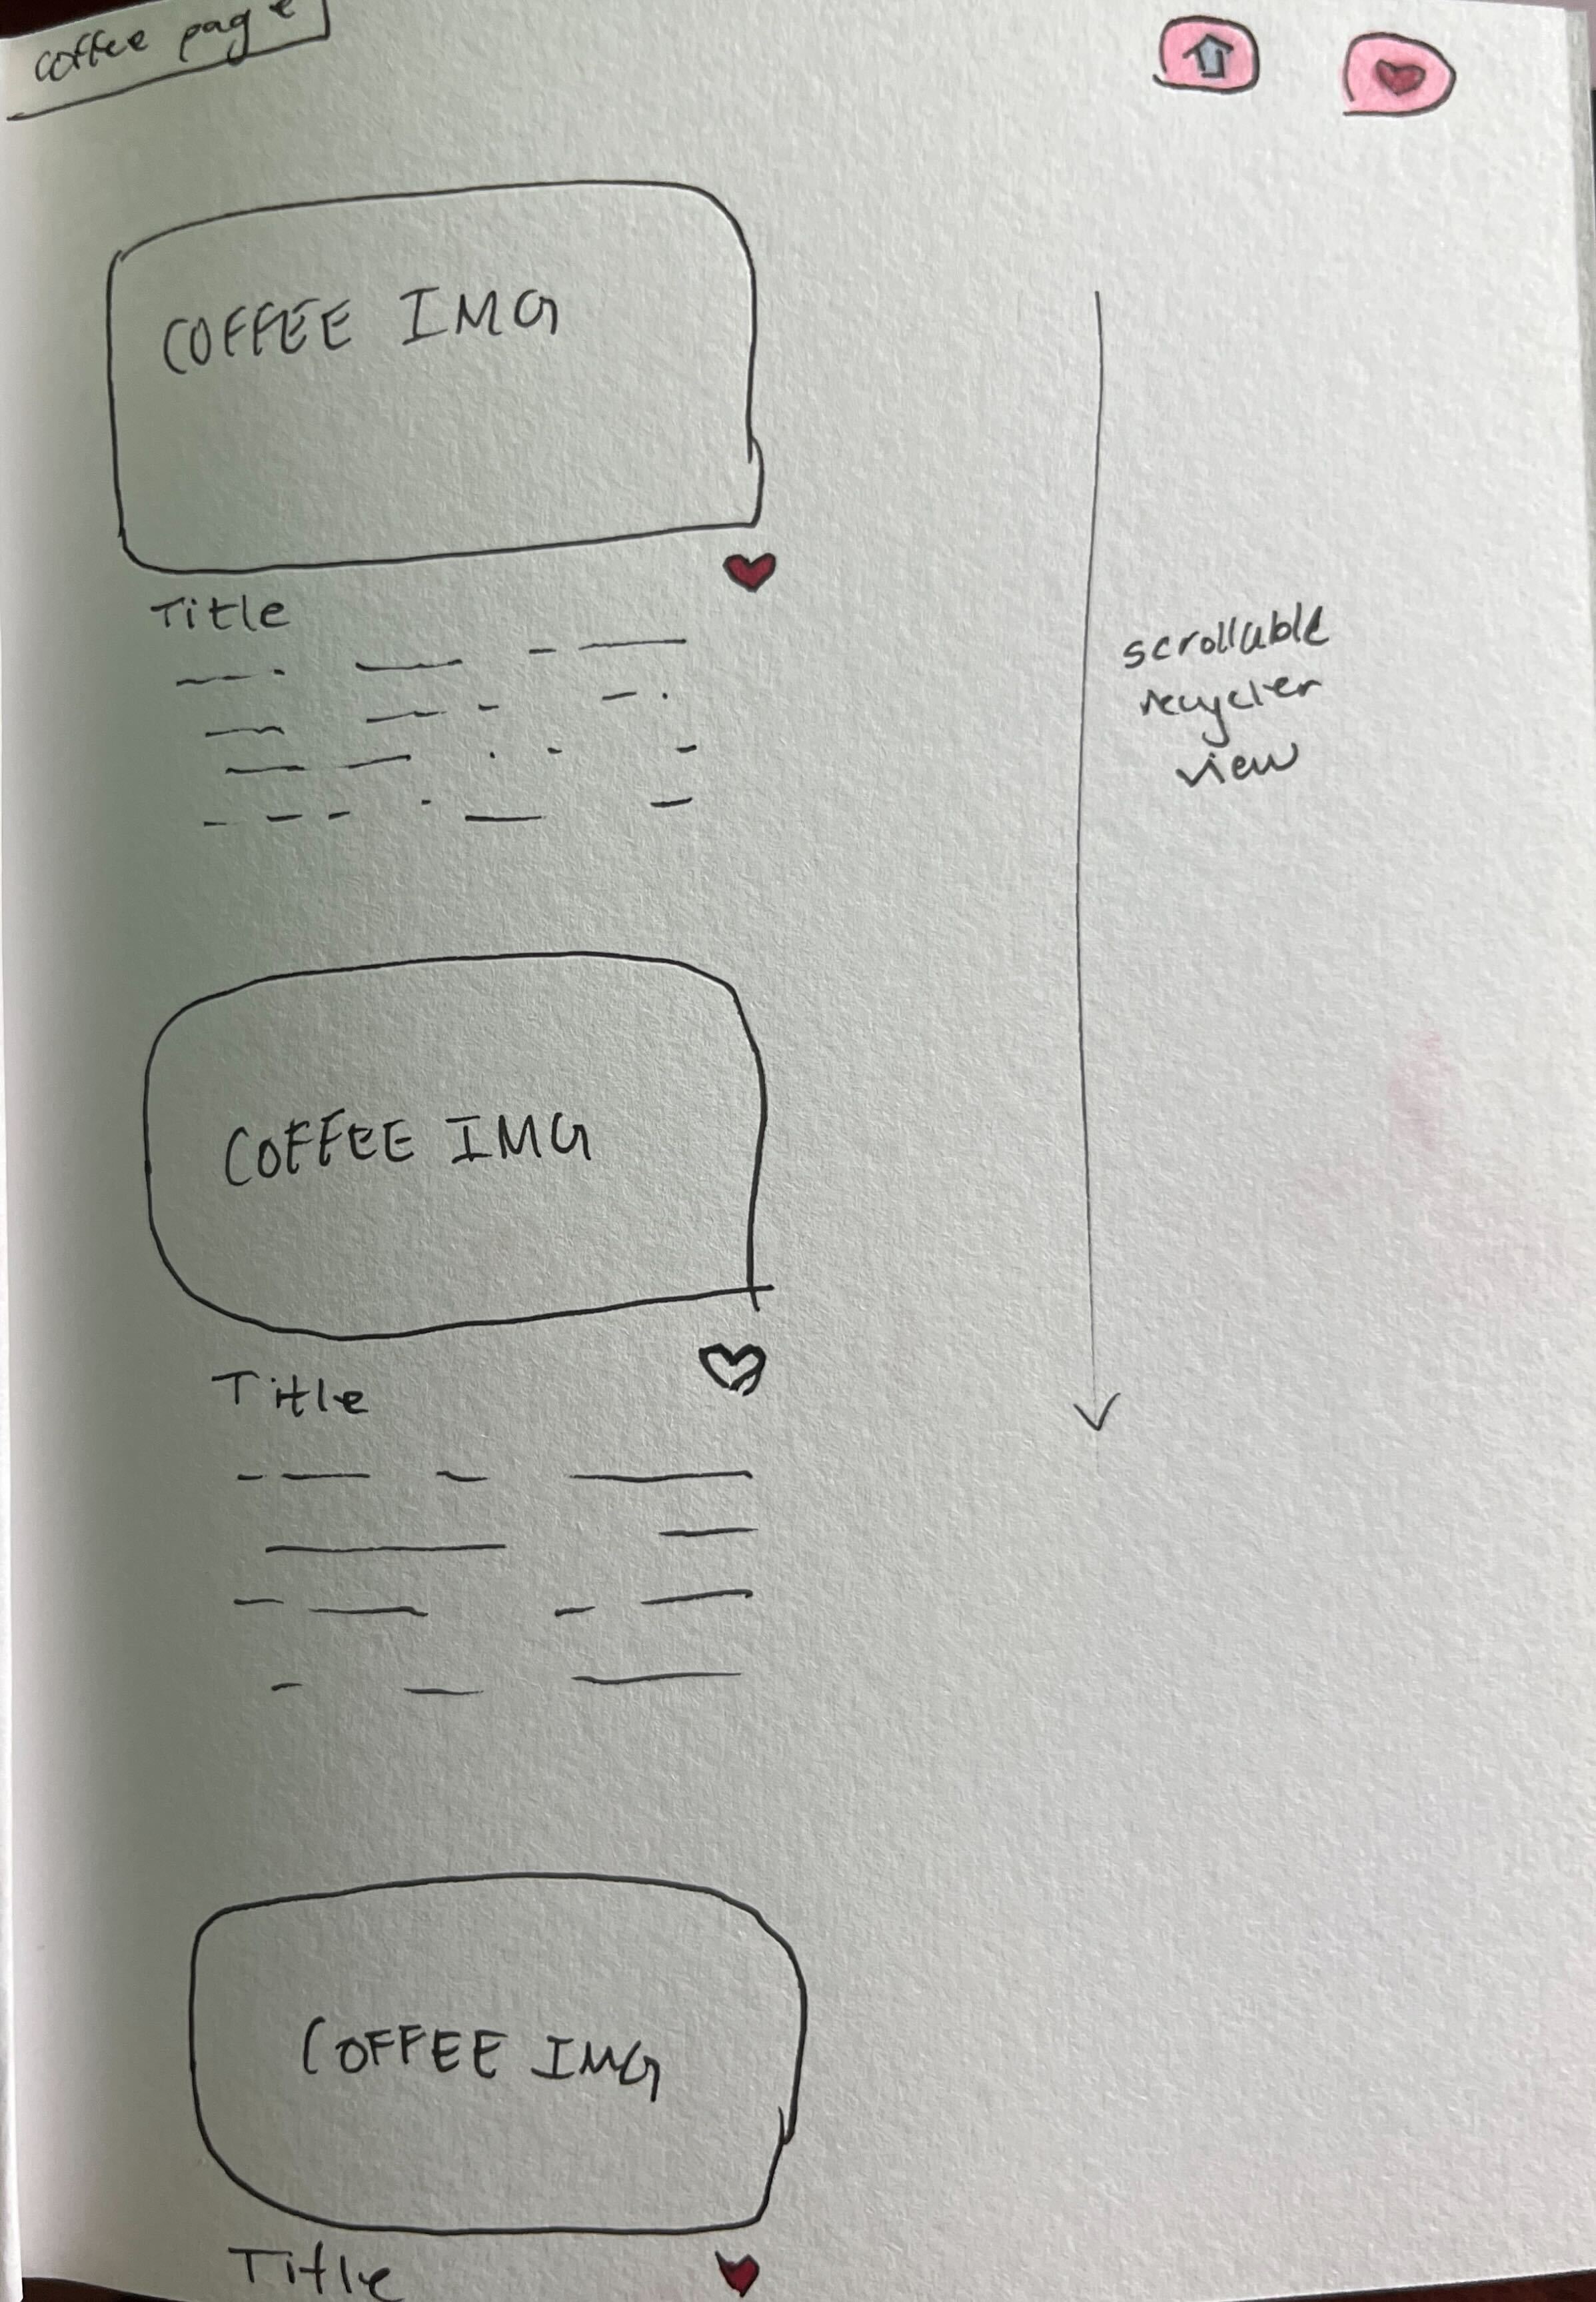 coffee page
COFFEE IMG
Title
scrollable
recycler
view
COFFEE IMG
Title
COFFEE IMG
Title